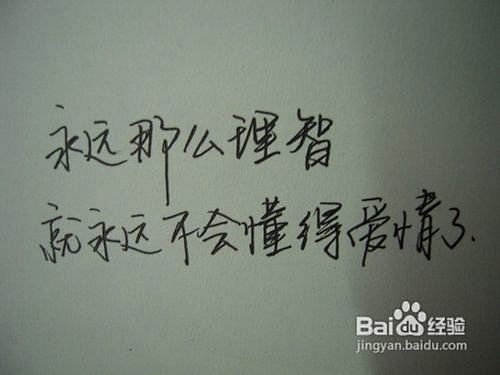 永远那么理智
就永远不会懂得爱情了.
Baidu经验
jingyan.baidu.com